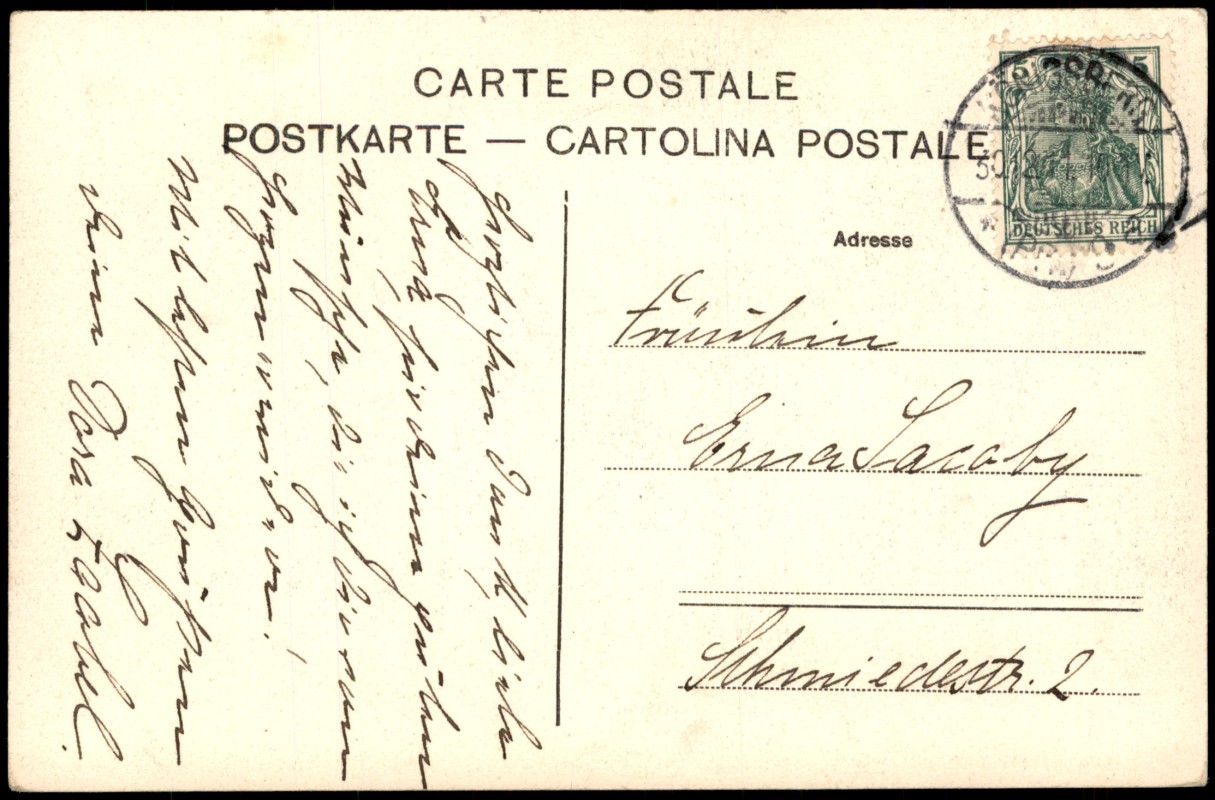 CARTE POSTALE
POSTKARTE — CARTOLINA POSTALE
5 5
DEUTSCHES REICH
Adresse
Fräulein
Erna Jacoby
Schmiedestr. 2.
Herzlichen Dank, liebe
Erna, für Deine guten
Wünsche, die ich Dir von
Herzen erwidere!
Mit besten Grüßen
Deine Dora